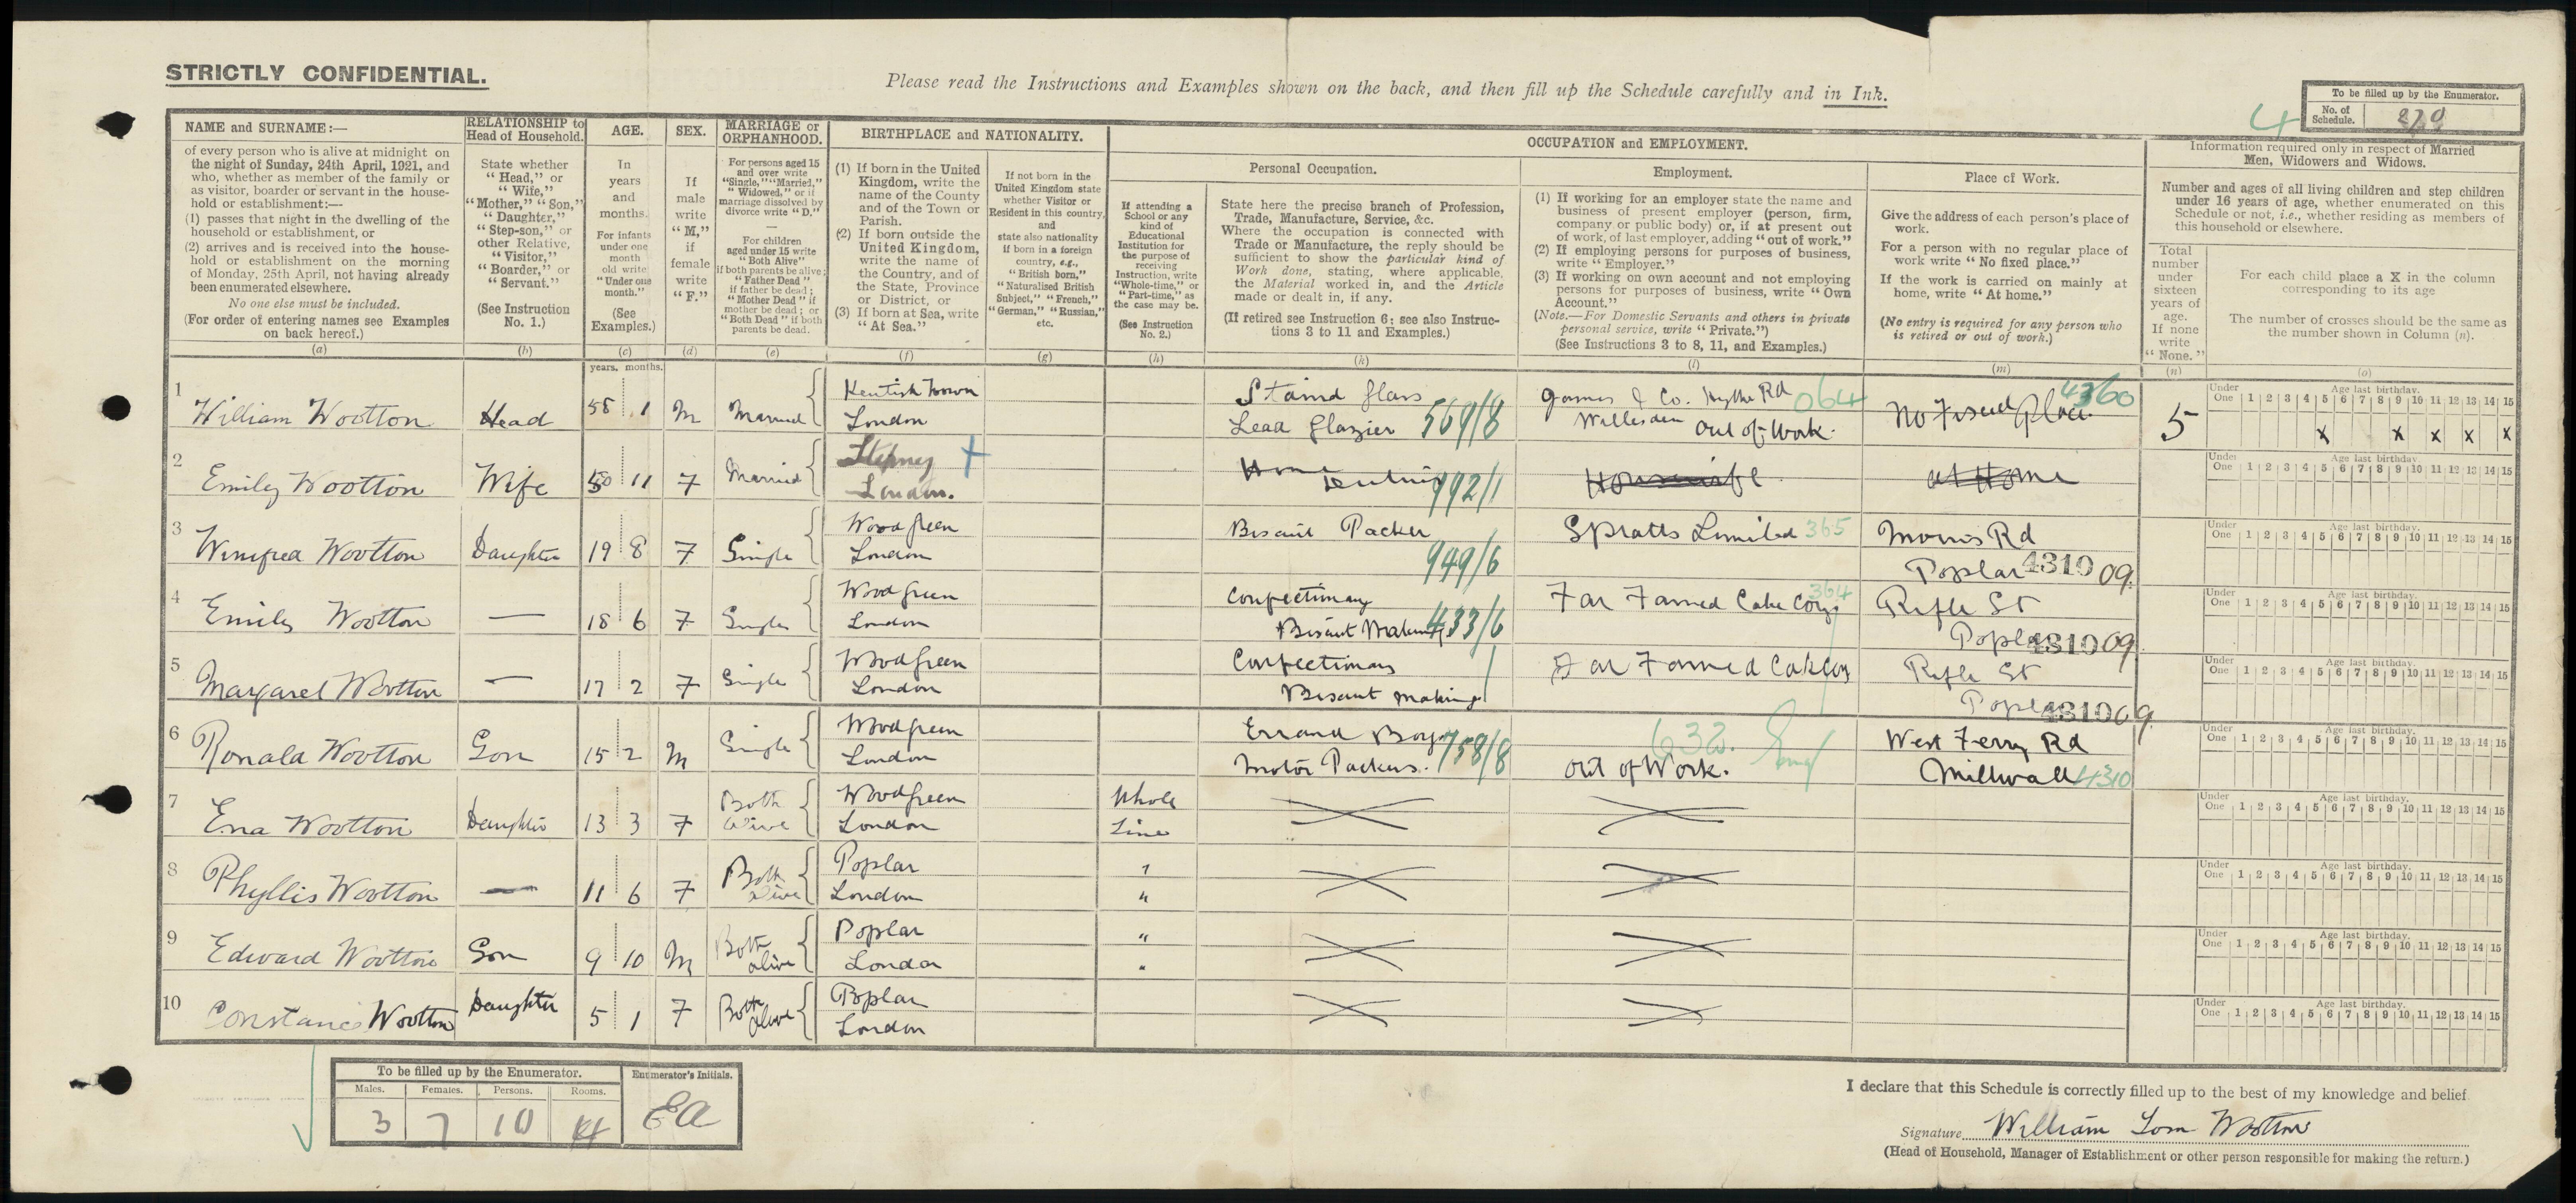 STRICTLY CONFIDENTIAL.
Please read the Instructions and Examples shown on the back, and then fill up the Schedule carefully and in Ink.
To be filled up by the Enumerator.
No. of Schedule.
4
NAME and SURNAME:—
of every person who is alive at midnight on
the night of Sunday, 24th April, 1921, and
who, whether as member of the family or
as visitor, boarder or servant in the house-
hold or establishment:—
(1) passes that night in the dwelling of the
household or establishment, or
(2) arrives and is received into the house-
hold or establishment on the morning
of Monday, 25th April, not having already
been enumerated elsewhere.
No one else must be included.
(For order of entering names see Examples
on back hereof.)
(a)
RELATIONSHIP to
Head of Household.
State whether
"Head," or
"Wife,"
"Mother," "Son,"
"Daughter,"
"Step-son," or
other Relative,
"Visitor,"
"Boarder," or
"Servant."
(See Instruction
No. 1.)
(b)
AGE.
In
years
and
months.
For infants
under one
month
old write
"Under one
month."
(See
Examples.)
(c)
years. months.
SEX.
If
male
write
"M,"
if
female
write
"F."
(d)
MARRIAGE or
ORPHANHOOD.
For persons aged 15
and over write
"Single," "Married,"
"Widowed," or if
marriage dissolved by
divorce write "D."
—
For children
aged under 15 write
"Both Alive"
if both parents be alive;
"Father Dead"
if father be dead;
"Mother Dead" if
mother be dead; or
"Both Dead" if both
parents be dead.
(e)
BIRTHPLACE and NATIONALITY.
(1) If born in the United
Kingdom, write the
name of the County
and of the Town or
Parish.
(2) If born outside the
United Kingdom,
write the name of
the Country, and of
the State, Province
or District, or
(3) If born at Sea, write
"At Sea."
(f)
If not born in the
United Kingdom state
whether Visitor or
Resident in this country,
and
state also nationality
if born in a foreign
country, e.g.,
"British born,"
"Naturalised British
Subject," "French,"
"German," "Russian,"
etc.
(g)
OCCUPATION and EMPLOYMENT.
If attending a
School or any
kind of
Educational
Institution for
the purpose of
receiving
Instruction, write
"Whole-time," or
"Part-time," as
the case may be.
(See Instruction
No. 2.)
(h)
Personal Occupation.
State here the precise branch of Profession,
Trade, Manufacture, Service, &c.
Where the occupation is connected with
Trade or Manufacture, the reply should be
sufficient to show the particular kind of
Work done, stating, where applicable,
the Material worked in, and the Article
made or dealt in, if any.
(If retired see Instruction 6; see also Instruc-
tions 3 to 11 and Examples.)
(k)
Employment.
(1) If working for an employer state the name and
business of present employer (person, firm,
company or public body) or, if at present out
of work, of last employer, adding "out of work."
(2) If employing persons for purposes of business,
write "Employer."
(3) If working on own account and not employing
persons for purposes of business, write "Own
Account."
(Note.—For Domestic Servants and others in private
personal service, write "Private.")
(See Instructions 3 to 8, 11, and Examples.)
(l)
Place of Work.
Give the address of each person's place of
work.
For a person with no regular place of
work write "No fixed place."
If the work is carried on mainly at
home, write "At home."
(No entry is required for any person who
is retired or out of work.)
(m)
Information required only in respect of Married
Men, Widowers and Widows.
Number and ages of all living children and step children
under 16 years of age, whether enumerated on this
Schedule or not, i.e., whether residing as members of
this household or elsewhere.
Total
number
under
sixteen
years of
age.
If none
write
"None."
(n)
For each child place a X in the column
corresponding to its age
The number of crosses should be the same as
the number shown in Column (n).
(o)
Under One Age last birthday. 1 2 3 4 5 6 7 8 9 10 11 12 13 14 15
1 William Wootton Head 58 1 M Married Kentish Town London Staind Glass Lead Glazier 569/8 Hythe Rd Willesden Out of Work. 064 No Fixed Place 4360 5 x x x x x
2 Emily Wootton Wife 50 11 F Married Stepney London. Home 992/1 Housewife at Home
3 Winifred Wootton Daughter 19 8 F Single Wood Green London Biscuit Packer 949/6 Spratts Limited 365 Morris Rd Poplar 4310 09.
4 Emily Wootton — 18 6 F Single Wood Green London Confectionary Biscuit Making 433/6 Far Famed Cake Coy 364 Rifle St Poplar 4310 09.
5 Margaret Wootton — 17 2 F Single Wood Green London Confectionary Biscuit Making Far Famed Cake Coy Rifle St Poplar 4310 09.
6 Ronald Wootton Son 15 2 M Single Wood Green London Errand Boy Motor Packers. 758/8 Out of Work. 632. West Ferry Rd Millwall 4310
7 Ena Wootton Daughter 13 3 F Both alive Wood Green London Whole Time
8 Phyllis Wootton — 11 6 F Both alive Poplar London " "
9 Edward Wootton Son 9 10 M Both alive Poplar London " "
10 Constance Wootton Daughter 5 1 F Both alive Poplar London
To be filled up by the Enumerator.
Males. Females. Persons. Rooms.
3 7 10 4
Enumerator's Initials.
EA
I declare that this Schedule is correctly filled up to the best of my knowledge and belief
Signature William Tom Wootton
(Head of Household, Manager of Establishment or other person responsible for making the return.)